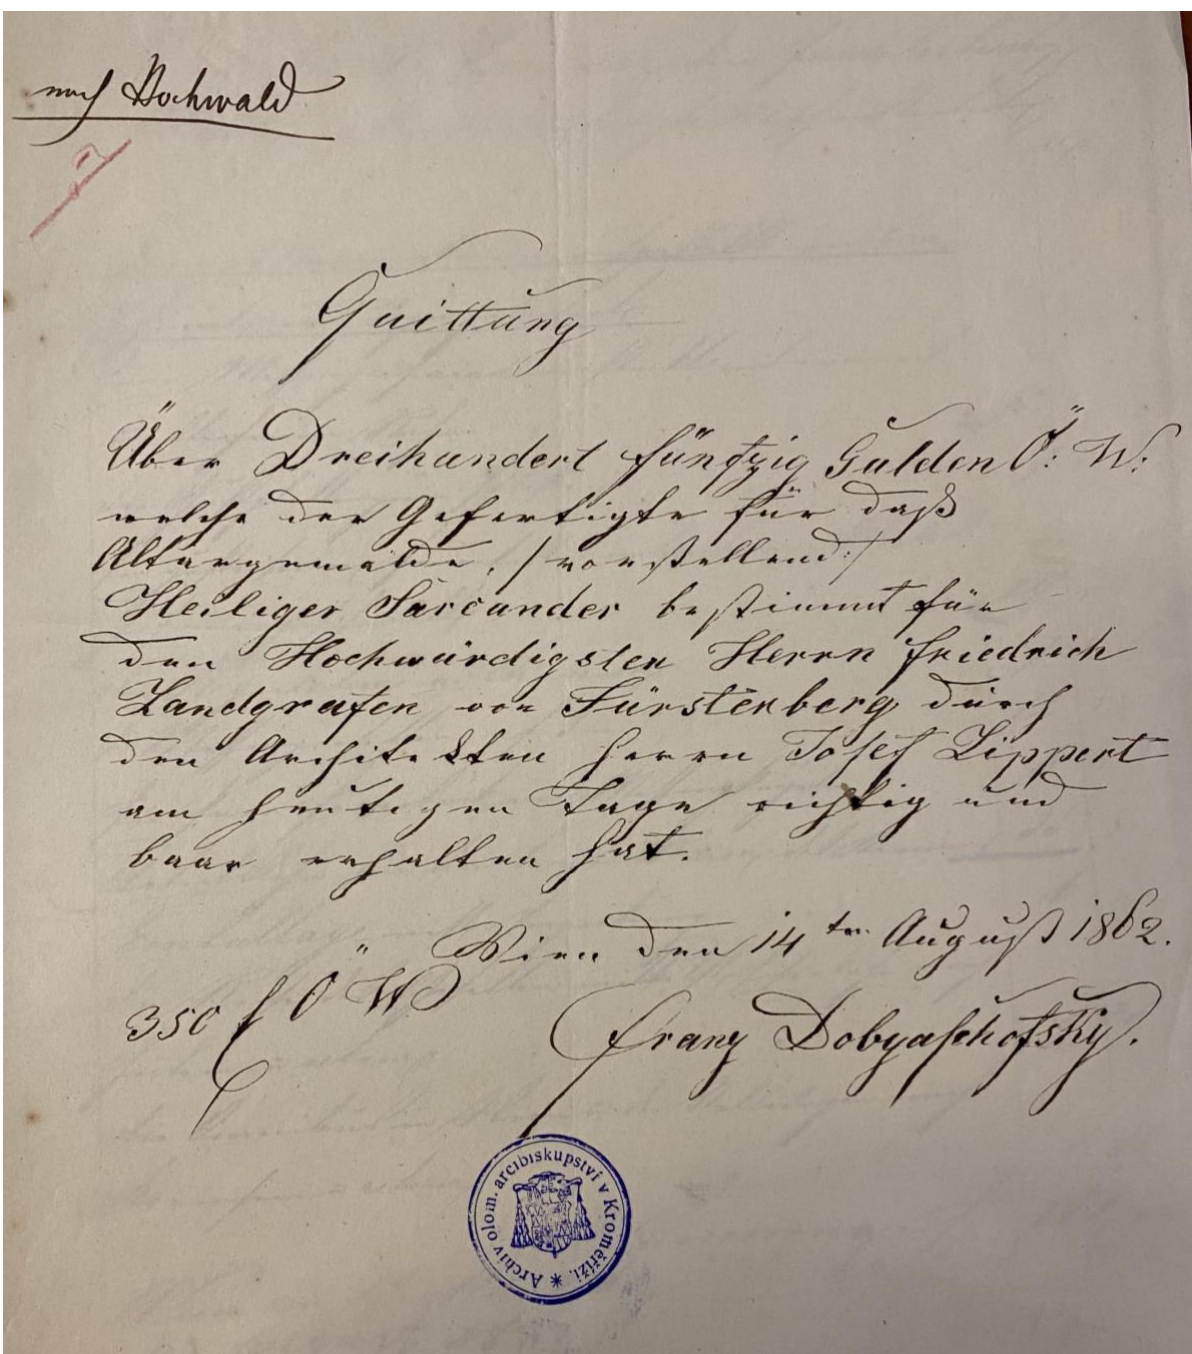 nach Hochwald
Quittung
Über Dreihundert fünfzig Gulden Ö: W:
welche der Gefertigte für daß
Altargemälde, /vorstellend:/
Heiliger Sarcander bestimmt für
den Hochwürdigsten Herrn Friedrich
Landgrafen von Fürstenberg durch
den Architekten Herrn Josef Lippert
am heutigen Tage richtig und
baar erhalten hat.
Wien den 14ten August 1862.
350 f Ö W
Franz Dobyaschofsky.
Archiv olom. arcibiskupství v Kroměříži. *